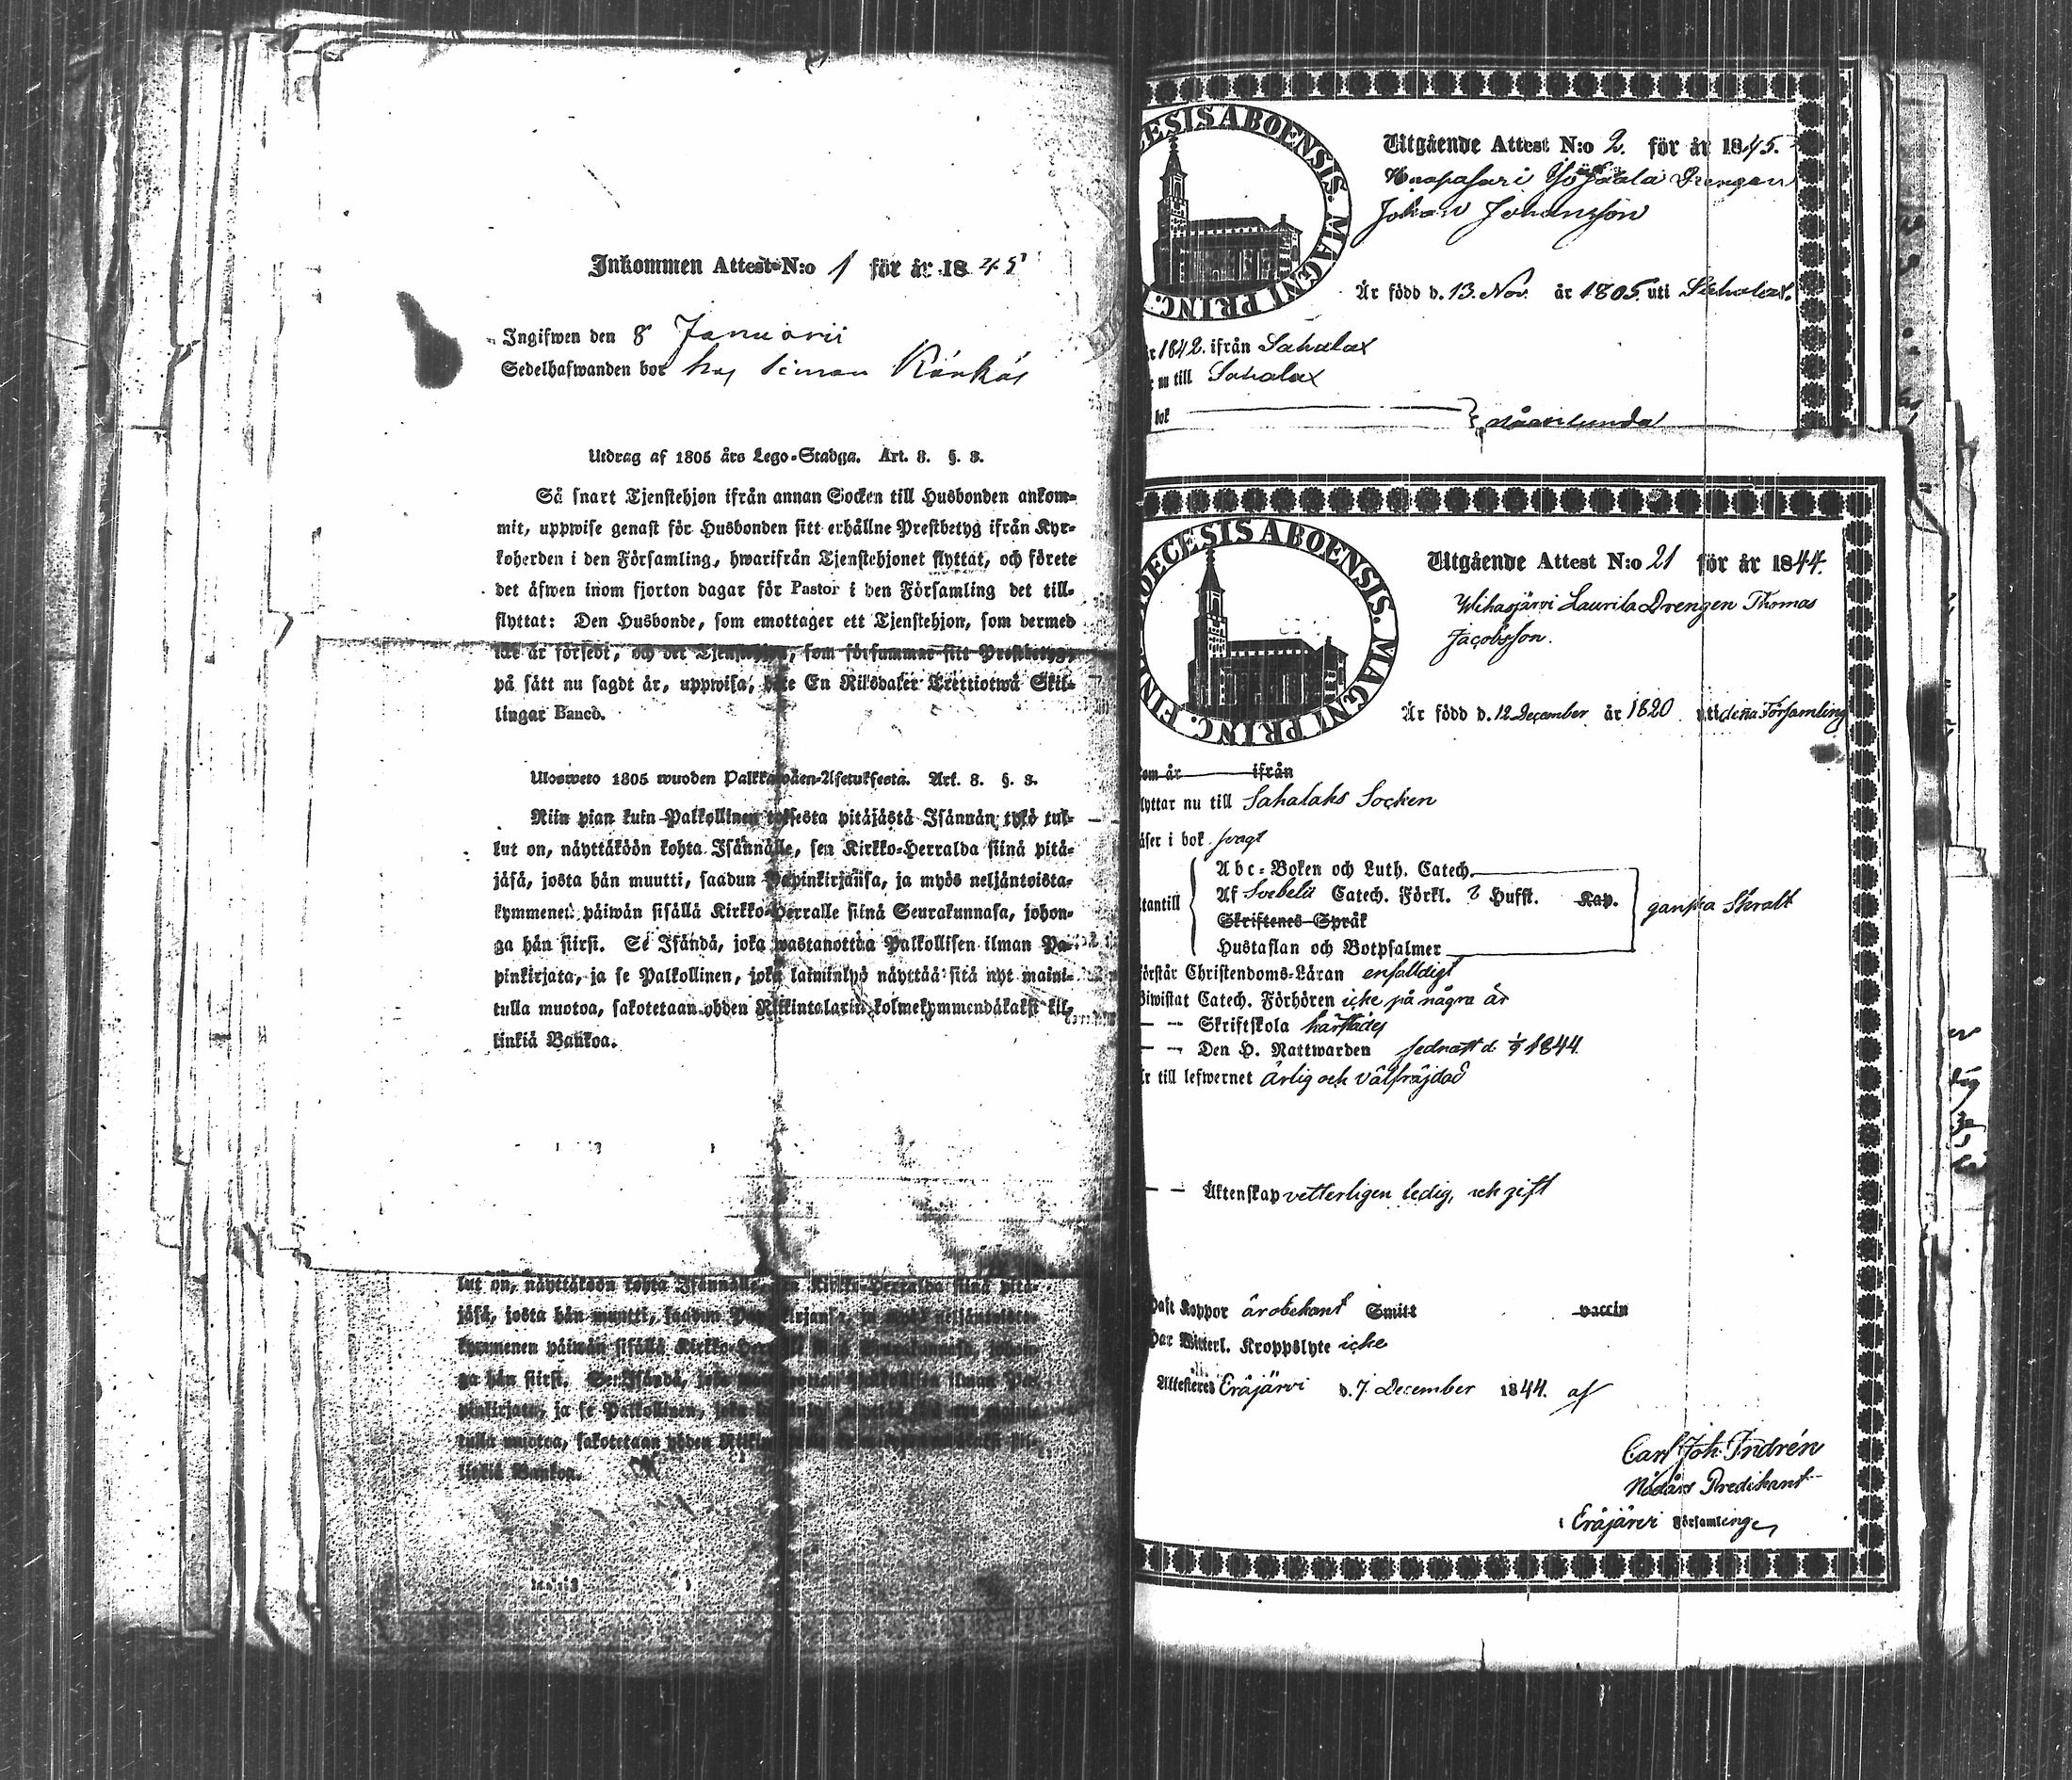 Inkommen Attest N:o 1 för år 1845
Ingifwen den 8 Januarii
Sedelhafwanden bor hos Simon
Utdrag af 1805 års Lego-Stadga. Art. 8. §. 3.
Så snart Tjenstehjon ifrån annan Socken till Husbonden ankom-
mit, uppwise genast för Husbonden sitt erhållne Prestbetyg ifrån Kyr-
koherden i den Församling, hwarifrån Tjenstehjonet flyttat, och förete
det äfwen inom fjorton dagar för Pastor i den Församling det till-
flyttat: Den Husbonde, som emottager ett Tjenstehjon, som dermed
icke är försedt, och det Tjenstehjon, som försummar sitt Prestbetyg,
på sätt nu sagdt är, uppwisa, böte En Riksdaler Trettiotwå Skil-
lingar Banco.
Ulosweto 1805 wuoden Palkkawäen-Asetuksesta. Art. 8. §. 3.
Niin pian kuin Palkollinen toisesta pitäjästä Isännän tykö tul-
lut on, näyttäköön kohta Isännälle, sen Kirkko-Herralda siinä pitä-
jäsä, josta hän muutti, saadun Papinkirjansa, ja myös neljäntoista-
kymmenen päiwän sisällä Kirkko-Herralle siinä Seurakunnasa, johon-
ga hän siirsi. Se Isändä, joka wastanottaa Palkollisen ilman Pa-
pinkirjata, ja se Palkollinen, joka laiminlyö näyttää sitä nyt maini-
tulla muotoa, sakotetaan yhden Riikintalarin kolmekymmendäkaksi kil-
linkiä Bankoa.
lut on, näyttäköön kohta Isännälle, sen Kirkko-Herralda siinä pitä-
jäsä, josta hän muutti, saadun Papinkirjansa, ja myös neljäntoista-
kymmenen päiwän sisällä Kirkko-Herralle siinä Seurakunnasa, johon-
ga hän siirsi. Se Isändä, joka wastanottaa Palkollisen ilman Pa-
pinkirjata, ja se Palkollinen, joka
tulla muotoa, sakotetaan yhden
linkiä Bankoa.
ESIS ABOENSIS. MAGNI PRINC.
Utgående Attest N:o 2. för år 1845.
Drengen
Johan Johansson
Är född d. 13. Nov. år 1805. uti Sahalax.
1842. ifrån Sahalax
nu till Sahalax
bok
DIOECESIS ABOENSIS. MAGNI PRINC. FIN
Utgående Attest N:o 21 för år 1844.
Wihasjärvi Laurila Drengen Thomas
Jacobsson.
Är född d. 12 December år 1820 uti deña Församling
om år ifrån
lyttar nu till Sahalaks Socken
äser i bok svagt
Abc-Boken och Luth. Catech.
tantill Af Svebelii Catech. Förkl. 2 Hufst. Kap. ganska Skralt
Skriftenes Språk
Hustaflan och Botpsalmer
örstår Christendoms-Läran enfalldigt
Biwistat Catech. Förhören icke på några år
— — Skriftskola härstädes
— — Den H. Nattwarden sednast d. 1/9 1844.
r till lefwernet ärlig och välfräjdad
— — Äktenskap vetterligen ledig, och gift
haft Koppor är obekant Smitt vaccin
har Witterl. Kroppslyte icke
Attesteres Eräjärvi d. 7. December 1844. af
Carl Joh. Indrén
Nådårs Predikant
i Eräjärvi Församling